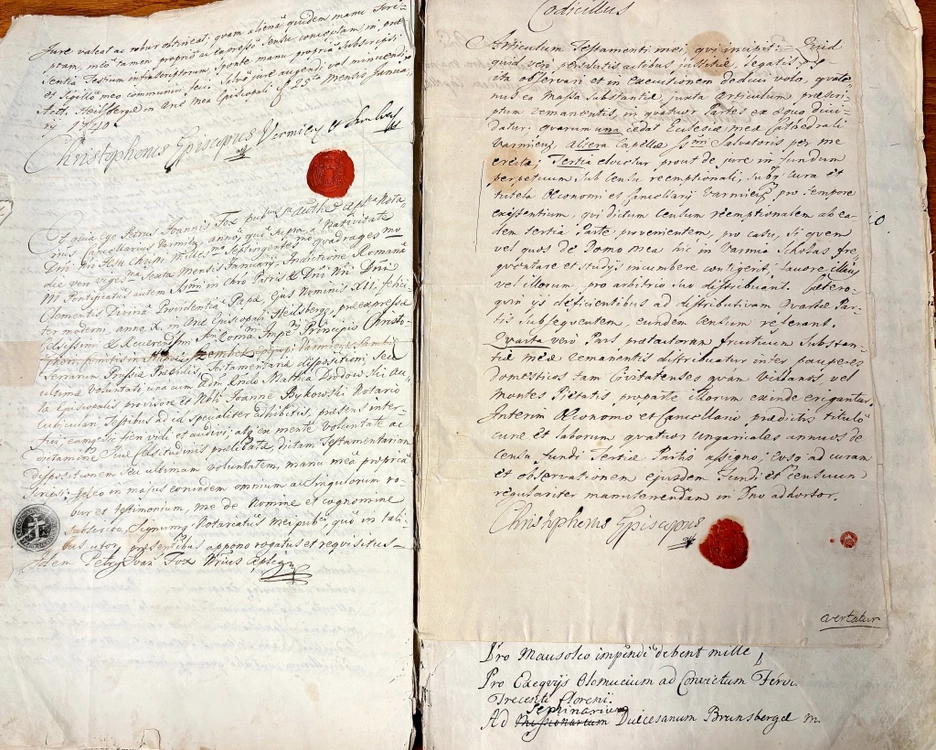 jure valeat ac robur obtineat, quam aliena quidem manu scri-
ptam, meo tamen proprio ac expresso sensu conceptam, in omni
sentia Testium infrascriptorum, sponte manu propria subscripsi
et sigillo meo communivi, feci. Salvo jure augendi, vel minuendi
Actt. Heilsbergæ in Arce mea Episcopali die 25ta mensis Janua-
ry 1740
Christophorus Episcopus Varmien et Sambien
Et quia ego Petrus Joannes Fox publ. Sra auth. Aplica Nota-
rius Cancellarius Varmien, anno, quo supra a Nativitate
Dni Nri Jesu Christi Millesimo Septingentesimo quadragesimo
die vero vigesima sexta Mensis January, Indictione Romana
Pontificatus autem Ssmi in Chro Patris et Dni Nri Dni
Clementis Divina Providentia Papæ, ejus Nominis XII. felici-
ter moderni, anno X. in Arce Episcopali Heilsberg, præexpressa
Celsissimi & Reverendissimi S. Romani Imperii Principis Christo-
phori
Terrarum Prussiæ Præsidis, testamentaria dispositioni, seu
ultimæ voluntati una cum Adm Rndo Mathia au-
læ Episcopalis provisore et Nobili Joanne Bykowski Notario
Cubiculari testibus ad id specialiter adhibitis, præsens inter-
fui eamque sic fieri vidi et audivi, atque ex mente voluntate ac
Celsitudinis prælibatæ, dictam Testamentariam
dispositionem seu ultimam voluntatem, manu mea propria
scripsi: ideo in majus eorundem omnium ac singulorum ro-
bur et testimonium, me de Nomine et cognomine
subscripsi, Signumq Notariatus mei publ quo in tali-
bus utor, præsentibus appono rogatus et requisitus
Idem Petrus Joan Fox Nrius Aplicq
Codicillus
Articulum Testamenti mei, qui incipit: Quid
quid vero persolutis actibus justitiæ, legatis p
ita observari et in executionem deduci volo, quate-
nus ea Massa Substantiæ juxta articulum præscri-
ptum remanentis, in quatuor Partes ex æquo divi-
datur, quarum una cedat Ecclesiæ meæ Cathedrali
Varmien, altera Capellæ Ssmi Salvatoris per me
erectæ; Tertia elocetur prout de jure in fundum
perpetuum, sub censu reemptionali, subq cura et
tutela Œconomi et Cancellarij Varmien pro tempore
existentium, qui dictum censum reemptionalem ab ea-
dem tertia Parte provenientem, pro casu, si quem
vel quos de Domo mea hic in Varmia Scholas fre-
quentare et studijs incumbere contigerit, favore illius
vel illorum, pro arbitrio suo distribuant. Cætero-
quin ijs deficientibus ad distributivam Quartæ Par-
tis subsequentem, eundem censum referant.
Quarta vero Pars prætactorum fructuum Substan-
tiæ meæ remanentis distribuatur inter pauperes
domesticos tam Civitatenses quam Villanos, vel
Montes Pietatis, pro parte illorum exinde erigantur.
Interim Œconomo et Cancellario prædictis titulo
curæ et laborum quatuor ungaricales annuos de
censu fundi Tertiæ Partis assigno; Eosq ad curam
et observationem ejusdem Fundi et censuum
regulariter manutenendam in Dno adhortor.
Christophorus Episcopus
vertatur
Pro Mausoleo impendi debent mille
Pro Exequijs Olomucium ad Convictum Ferd.
Trecenti floreni.
Seminarium
Ad Missionarium Diœcesanum Brunsbergæ m.